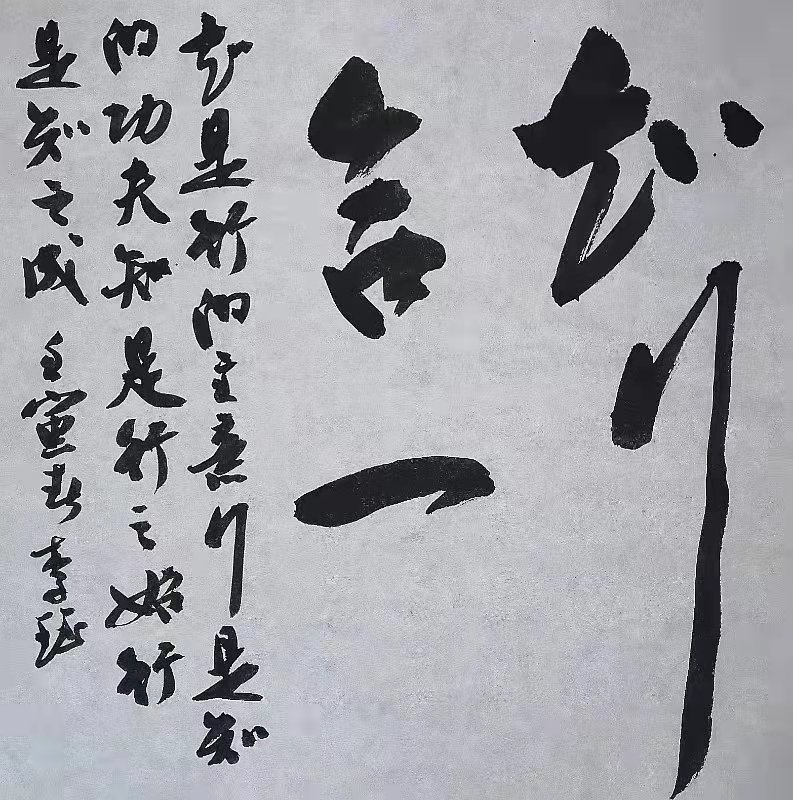 知行
合一
知是行的主意行是知
的功夫知是行之始行
是知之成 壬寅春 李